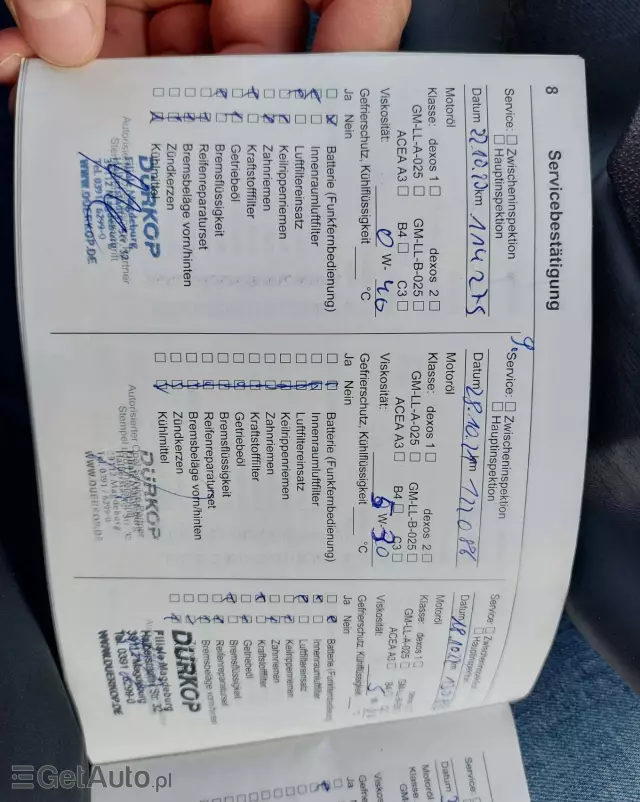 8
Servicebestätigung
Service: Zwischeninspektion
Hauptinspektion
Datum 22.10.20 km 114 275
Motoröl
Klasse: dexos 1 dexos 2
GM-LL-A-025 GM-LL-B-025
ACEA A3 B4 C3
Viskosität: 0 W- 40
Gefrierschutz, Kühlflüssigkeit °C
Ja Nein
Batterie (Funkfernbedienung)
Innenraumluftfilter
Luftfiltereinsatz
Keilrippenriemen
Zahnriemen
Kraftstofffilter
Getriebeöl
Bremsflüssigkeit
Reifenreparaturset
Bremsbeläge vorn/hinten
Zündkerzen
Kühlmittel
DÜRKOP
Tel. 0391 / 6299-0
WWW.DUERKOP.DE
9.
Service: Zwischeninspektion
Hauptinspektion
Datum 28.10.21 km 122 088
Motoröl
Klasse: dexos 1 dexos 2
GM-LL-A-025 GM-LL-B-025
ACEA A3 B4 C3
Viskosität: 5 W- 30
Gefrierschutz, Kühlflüssigkeit °C
Ja Nein
Batterie (Funkfernbedienung)
Innenraumluftfilter
Luftfiltereinsatz
Keilrippenriemen
Zahnriemen
Kraftstofffilter
Getriebeöl
Bremsflüssigkeit
Reifenreparaturset
Bremsbeläge vorn/hinten
Zündkerzen
Kühlmittel
DÜRKOP
Autorisierter
Magdeburg
Tel. 0391 / 6299-0
WWW.DUERKOP.DE
Service: Zwischeninspektion
Hauptinspektion
Datum
Motoröl
Klasse: dexos 1
GM-LL-A-025
ACEA A3 B4
Viskosität: 5
Gefrierschutz, Kühlflüssigkeit
Ja Nein
Batterie (Funkfernbedienung)
Innenraumluftfilter
Luftfiltereinsatz
Keilrippenriemen
Zahnriemen
Kraftstofffilter
Getriebeöl
Bremsflüssigkeit
Reifenreparaturset
Bremsbeläge vorn/hinten
DÜRKOP
Filiale Magdeburg
39112 Magdeburg
Tel. 0391 / 6299-0
WWW.DUERKOP.DE
Service:
Datum
Motoröl
Klasse:
Viskosität:
GetAuto.pl